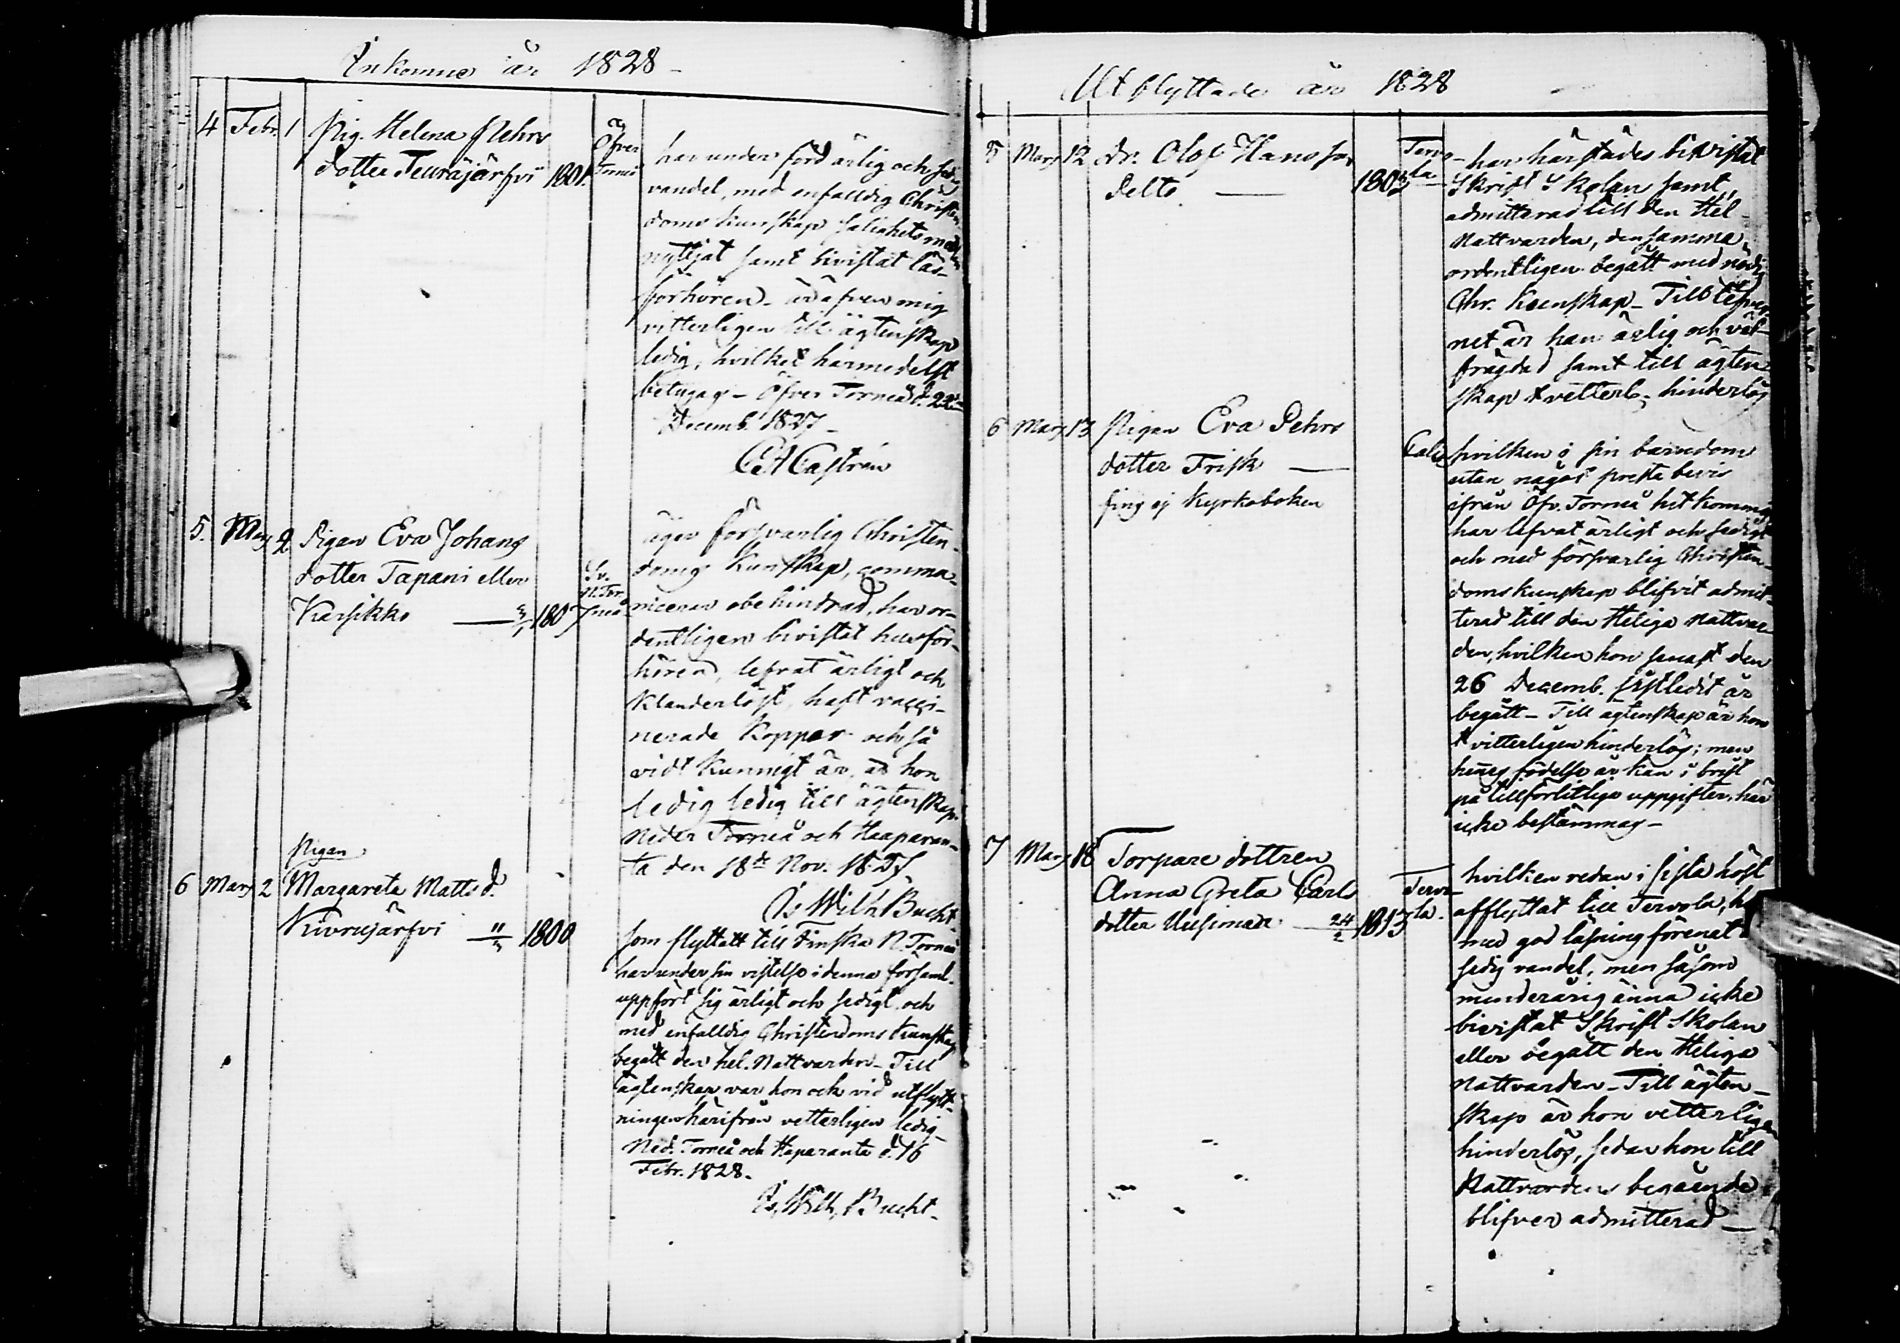 Inkomne år 1828
4 Febr. 1 Pig. Helena Pehrs
dotter Teuräjärfvi 1801.
Öfver
Torneå
har under förd ärlig och sedig
vandel, med enfalldig Christen
doms kunskap salighetsmedlen
nyttjat samt bivistat läs-
förhören - är äfven mig
vitterligen till ägtenskap
ledig, hvilket härmedelst
betygas - Öfver Torneå d. 22
Decemb. 1827 -
Castrén
5. Mars 2 Pigan Eva Johans
dotter Tapani eller
Karsikko — 3/1 1807
Sv.
N. Tor
neå
äger försvarlig Christen-
doms kunskap, commu-
nicerar obehindrad, har or-
dentligen bivistat husför-
hören, lefvat ärligt och
klanderlöst, haft vacci-
nerade koppor och så
vidt kunnigt är, är hon
ledig ledig till ägtenskap
Neder Torneå och Haaparan-
ta den 18de Nov. 1827
Is. Wilh. Bucht.
Pigan
6 Mars 2 Margareta Matts d.
Kivrujärfvi — 11/3 1800
som flyttatt till Finska N. Torneå
har under sin vistelse i denna församl.
uppfört sig ärligt och sedigt, och
med enfalldig Christendoms kunskap
begått den hel. Nattvarden - Till
ägtenskap var hon ock vid utflytt-
ningen härifrån vetterligen ledig -
Ned. Torneå och Haparanta d. 16
Febr. 1828.
Is. Wilh. Bucht -
Utflyttade år 1828
5 Mars 12 Dr. Olof Hansson
Pelto — 1805
Tervo-
la
har härstädes bivistat
Skrift Skolan samt
admitterad till den Hel.
Nattvarden, densamma
ordentligen begått med nödig
Chr. kunskap - Till lefver
net är han ärlig och väl-
frägdad samt till ägten-
skap vetterl. hinderlös
6 Mars 13 Pigan Eva Pehrs
dotter Frisk —
fins ej kyrkoboken
Calix
hvilken i sin barndom
utan något presta bevis
ifrån Öfv. Torneå hit kommit
har lefvat ärligt och sedigt
och med försvarlig Christen-
doms kunskap blifvit admit-
terad till den Heliga Nattvar-
den, hvilken hon senast den
26 Decemb. sistledit år
begått - Till ägtenskap är hon
vitterligen hinderlös; men
hennes födelse år kan i brist
på tillförlitliga uppgifter, här
icke bestämmas -
7 Mars 18 Torpare dottren
Anna Greta Carls
dotter Uusimaa — 24/2 1813
Tervo
la.
hvilken redan i sista höst
afflyttat till Tervola,
med god läsning förenat
sedig vandel, men såsom
minderårig ännu icke
bivistat Skrift Skolan
eller begått den Heliga
Nattvarden - Till ägten-
skap är hon vetterligen
hinderlös, sedan hon till
Nattvardens begående
blifver admitterad —